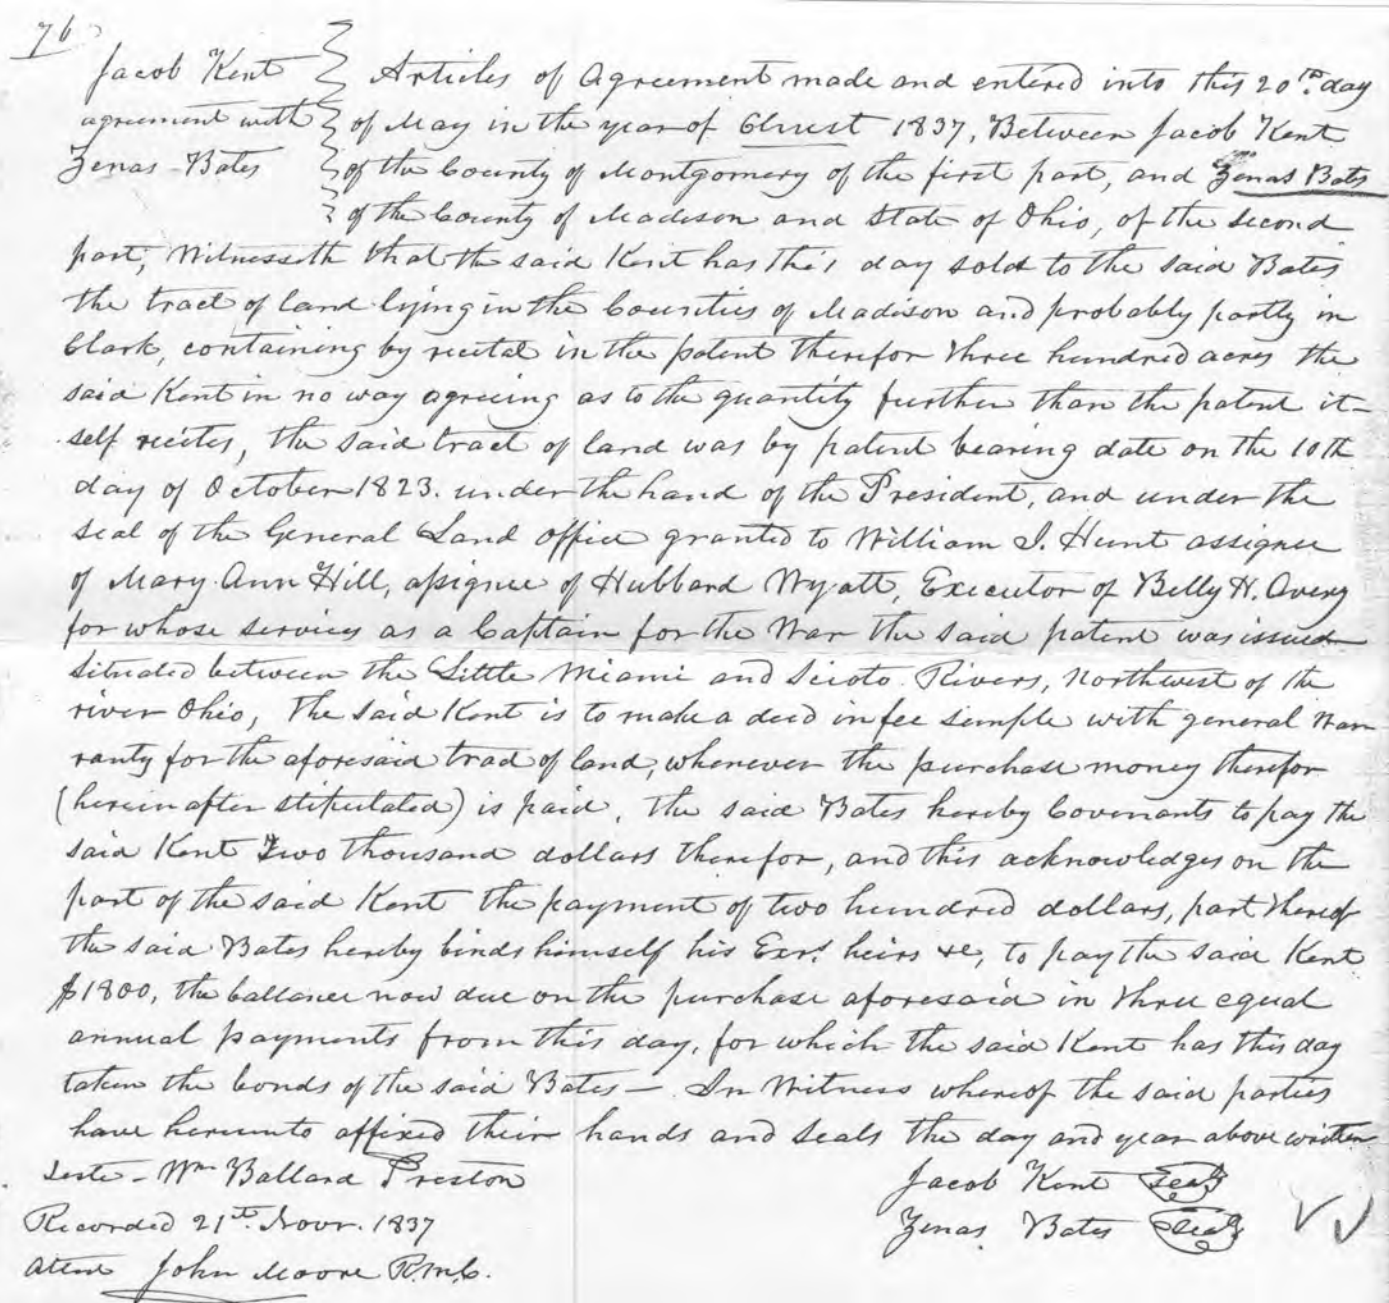 76
Jacob Kent
agreement with
Zenas Bates
Articles of Agreement made and entered into this 20th. day
of May in the year of Christ 1837, Between Jacob Kent
of the County of Montgomery of the first part, and Zenas Bates
of the County of Madison and State of Ohio, of the second
part, Witnesseth that the said Kent has this day sold to the said Bates
the tract of land lying in the Counties of Madison and probably partly in
Clark, containing by recital in the patent therefor three hundred acres the
said Kent in no way agreeing as to the quantity further than the patent it-
self recites, the said tract of land was by patent bearing date on the 10th
day of October 1823. under the hand of the President, and under the
seal of the General Land office granted to William I. Hunt assignee
of Mary Ann Hill, assignee of Hubbard Wyatt, Executor of Belly H. Avery
for whose services as a Captain for the War the said patent was issued
situated between the Little Miami and Scioto Rivers, Northwest of the
river Ohio, the said Kent is to make a deed in fee simple with general War
ranty for the aforesaid tract of land, whenever the purchase money therefor
(herein after stipulated) is paid, the said Bates hereby Covenants to pay the
said Kent Two thousand dollars therefor, and this acknowledges on the
part of the said Kent the payment of two hundred dollars, part thereof
the said Bates hereby binds himself his Exrs. heirs &c, to pay the said Kent
$1800, the ballance now due on the purchase aforesaid in three equal
annual payments from this day, for which the said Kent has this day
taken the bonds of the said Bates — In Witness whereof the said parties
have hereunto affixed their hands and seals the day and year above written
Teste - Wm Ballard Preston
Jacob Kent Seal
Recorded 21st. Novr. 1837
Zenas Bates Seal
Attest John Moore R.M.C.